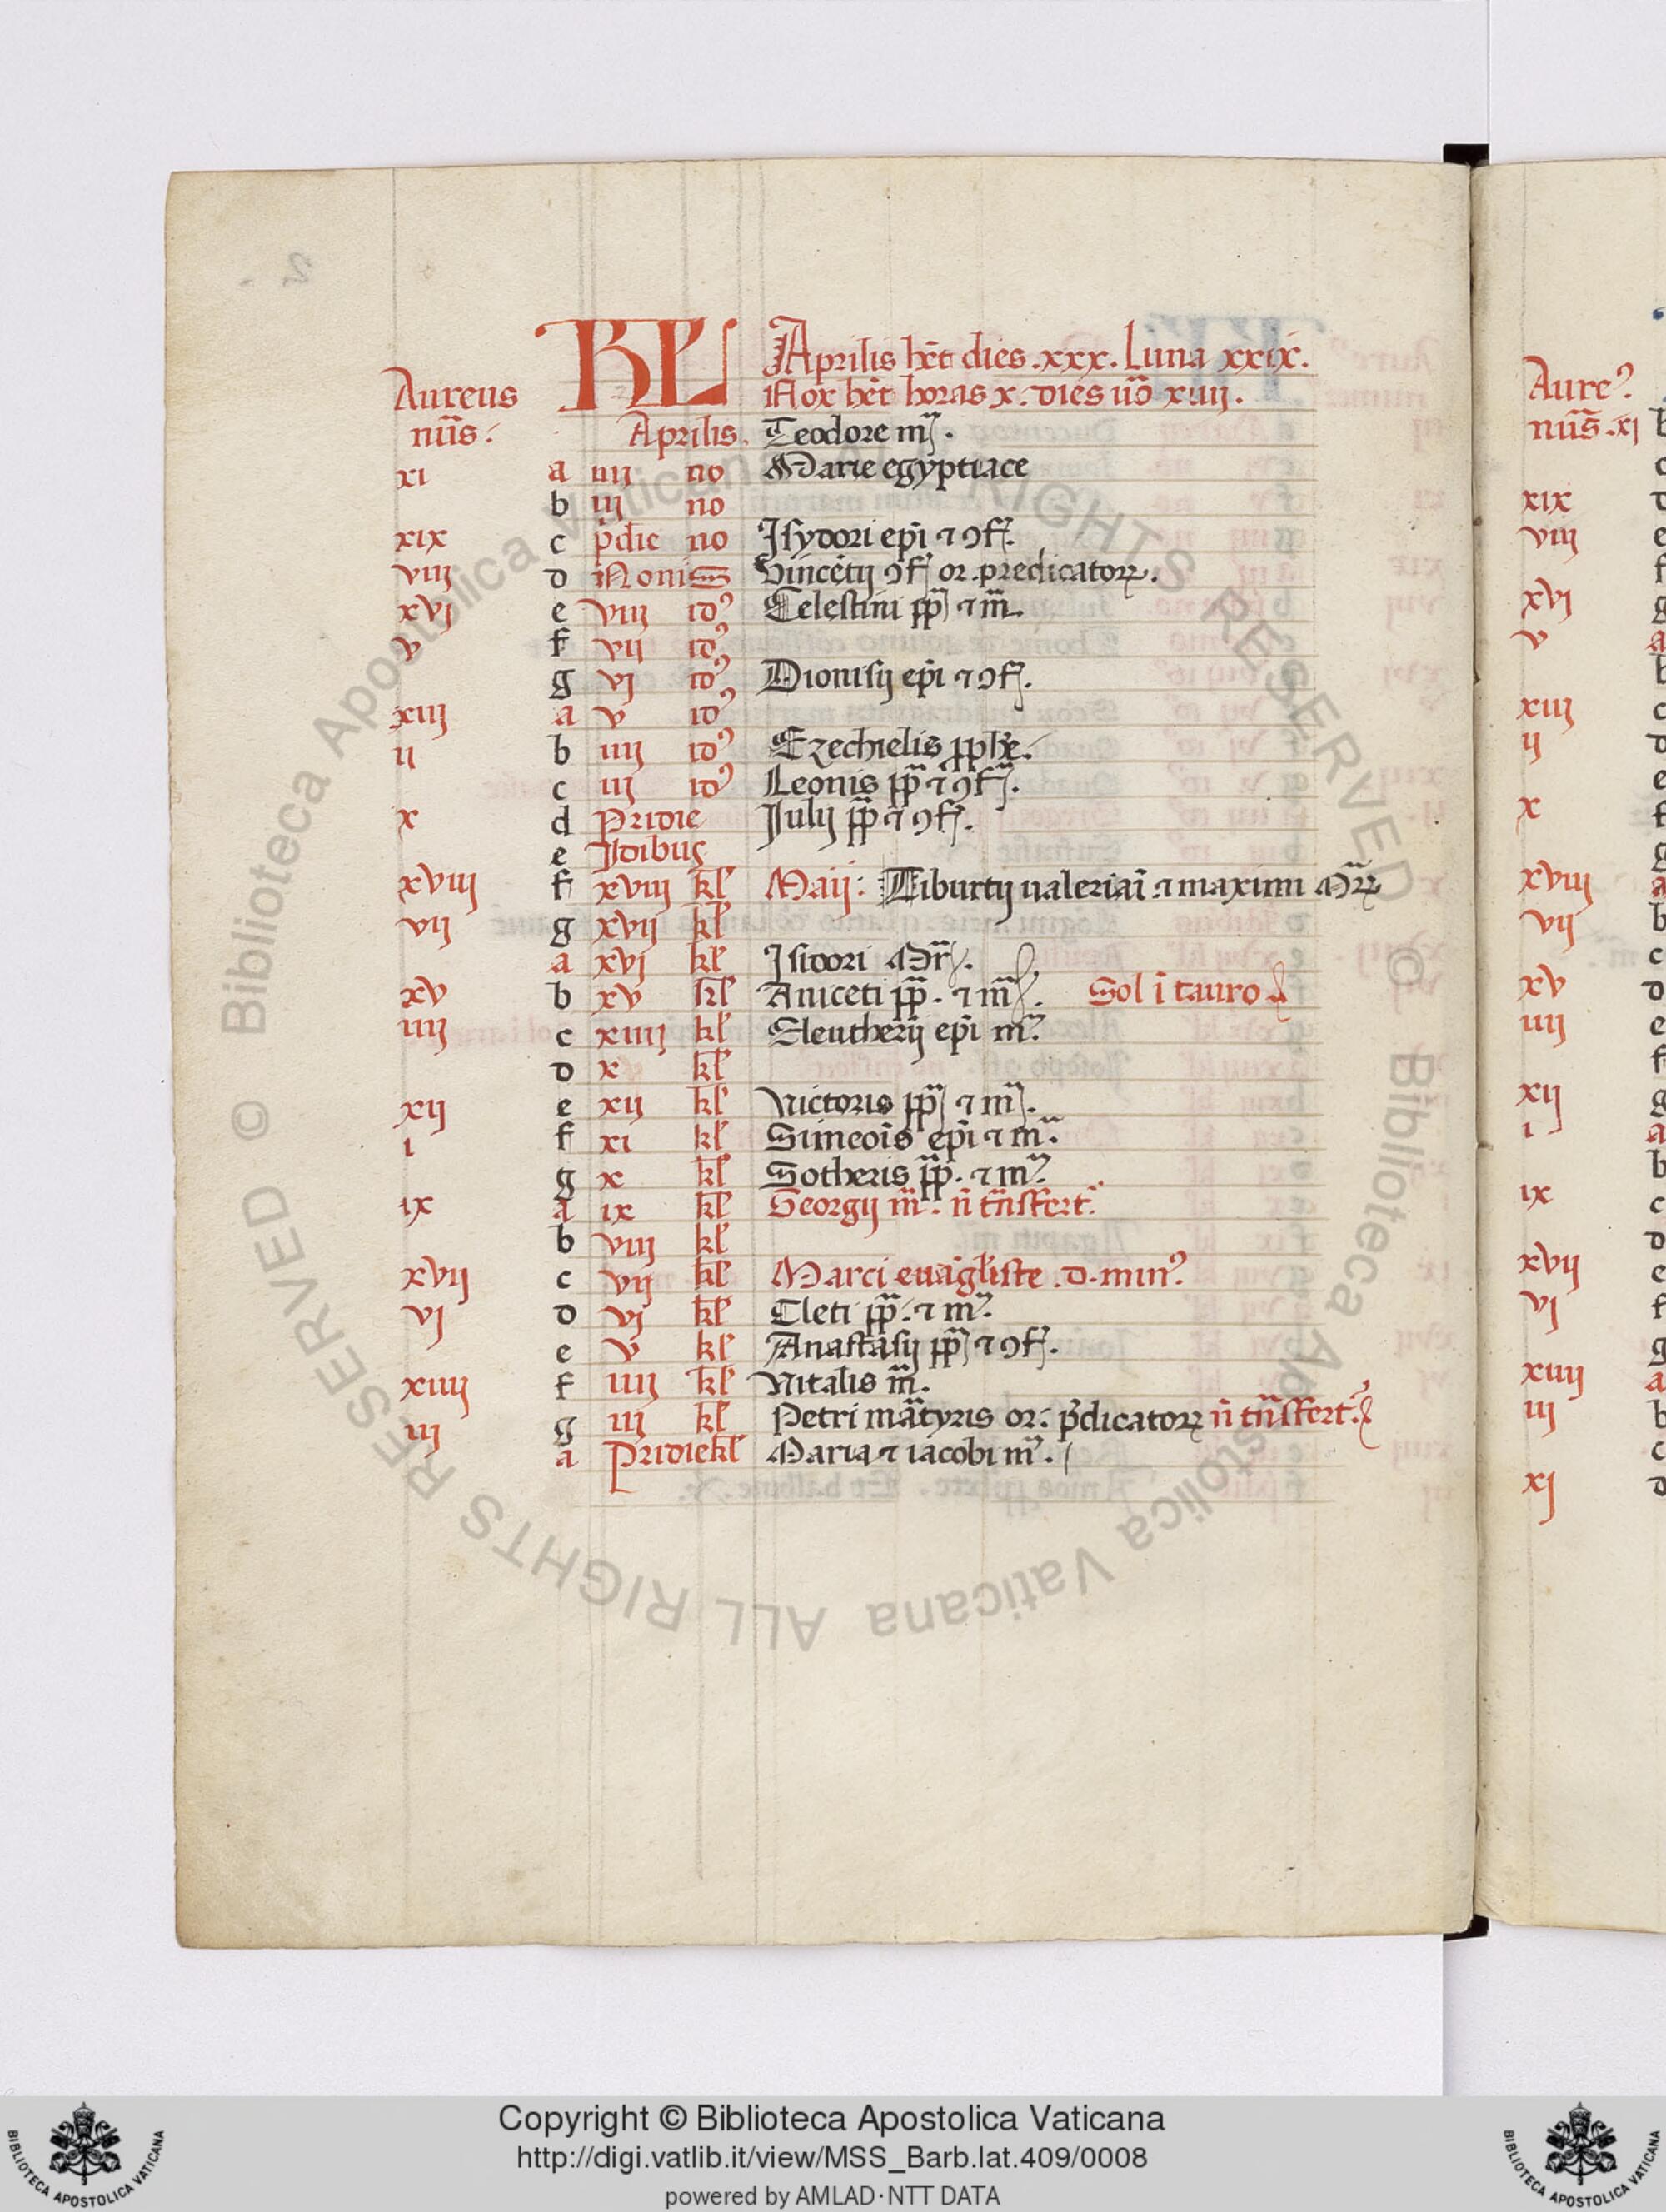 KL Aprilis hēt dies .xxx. Luna xxix.
Aureus Nox hēt horas x. dies ūo xiiij.
nūs: Aprilis. Teodore m̄.
xi a iiij no Marie egyptiace
b iij no
xix c p̄die no Isydori ep̄i ⁊ ꝯf.
viij d Nonis Vincētij ꝯf or. predicatorꝝ.
xvj e viij idꝰ Celestini pp̄ ⁊ m̄.
v f vij idꝰ
g vj idꝰ Dionisij ep̄i ⁊ ꝯf.
xiij a v idꝰ
ij b iiij idꝰ Ezechielis pphe.
c iij idꝰ Leonis pp̄ ⁊ ꝯf.
x d Pridie Julij pp̄ ⁊ ꝯf.
e Idibus
xviij f xviij kl Maij: Tiburtij ualeriāi ⁊ maximi Mr̄ꝝ
vij g xvij kl
a xvj kl Isidori Mr̄.
xv b xv kl Aniceti pp̄. ⁊ m̄. Sol ī tauro
iiij c xiiij kl Eleutherij ep̄i m̄.
d x kl
xij e xij kl Victoris pp̄ ⁊ m̄.
i f xi kl Simeōis ep̄i ⁊ m̄.
g x kl Sotheris pp̄. ⁊ m̄.
ix a ix kl Georgij m̄. n̄ tn̄sfert.
b viij kl
xvij c vij kl Marci euāgliste .d. minꝰ.
vj d vj kl Cleti pp̄. ⁊ m̄.
e v kl Anastasij pp̄ ⁊ ꝯf.
xiiij f iiij kl Vitalis m̄.
iij g iij kl Petri mātyris or: p̄dicatorꝝ n̄ tn̄sfert.
a Pridie kl Maria ⁊ iacobi m̄.
Aureꝰ
nūs .xj b
c
xix d
viij e
f
xvj g
v a
b
xiij c
ij d
e
x f
g
xviij a
vij b
c
xv d
iiij e
f
xij g
i a
b
ix c
d
xvij e
vj f
g
xiiij a
iij b
c
xj d
© Biblioteca Apostolica Vaticana ALL RIGHTS RESERVED © Biblioteca Apostolica Vaticana ALL RIGHTS RESERVED
Copyright © Biblioteca Apostolica Vaticana
http://digi.vatlib.it/view/MSS_Barb.lat.409/0008
powered by AMLAD·NTT DATA
BIBLIOTECA APOSTOLICA VATICANA
BIBLIOTECA APOSTOLICA VATICANA